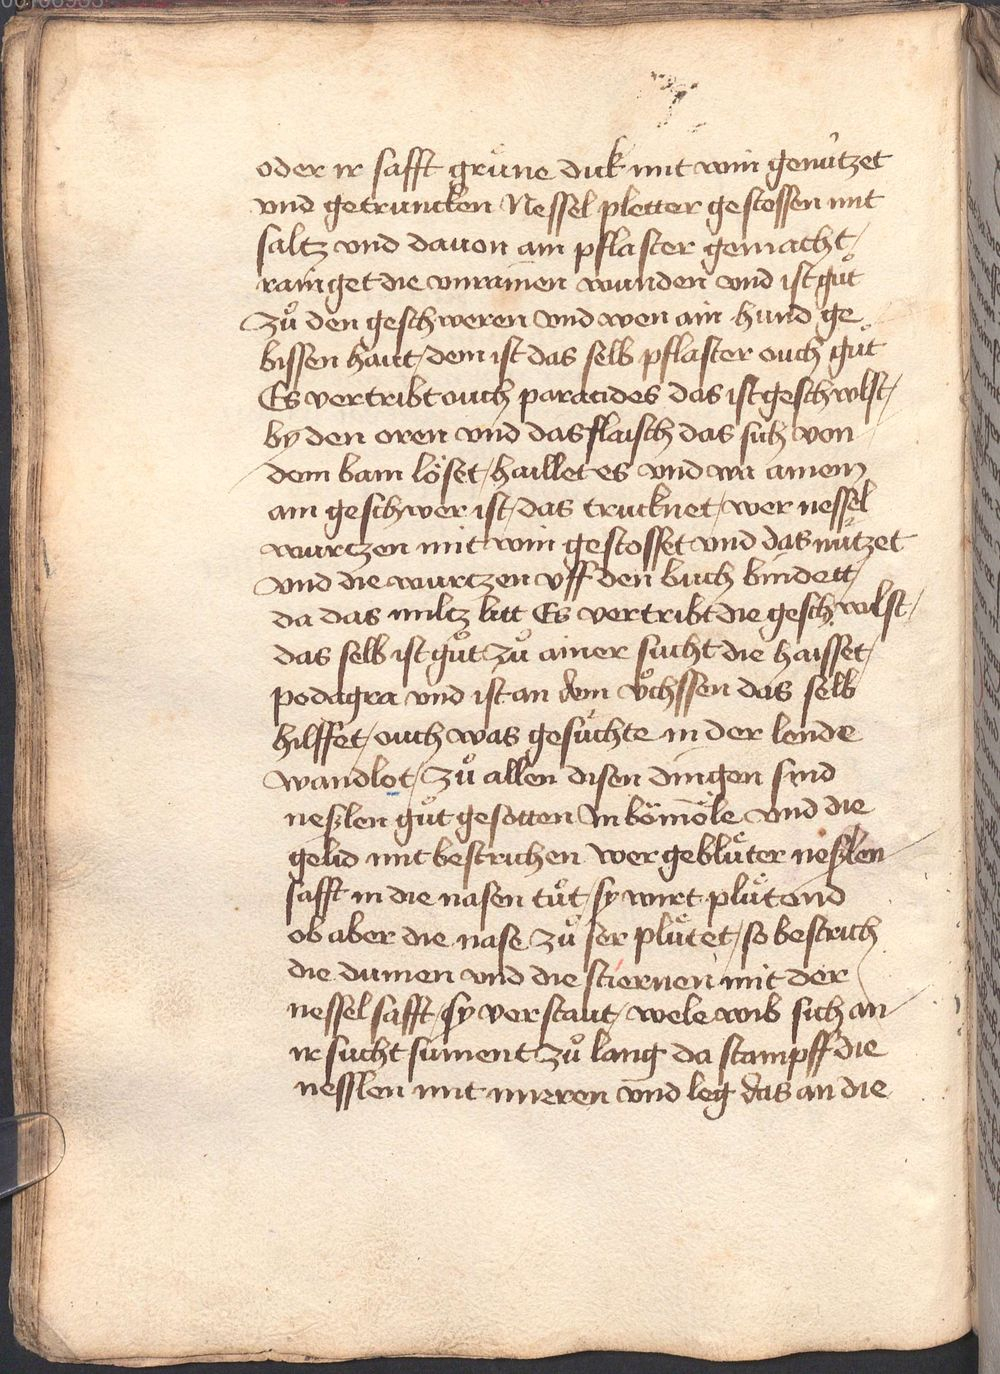 oder ir safft grüne dick mit win genützet
vnd getruncken Nessel pletter gestossen mit
saltz vnd dauon ain pflaster gemacht /
rainget die vnrainen wunden vnd ist gůt
zů den geschweren vnd wen ain hund ge
bissen haut / dem ist das selb pflaster ouch gůt
Es vertribt ouch paracides das ist geschwlst /
by den oren vnd das flaisch das sich von
dem bain löset / haillet es vnd wa ainem
ain geschwer ist / das trucknet / wer nessel
wurtzen mit win gestosset vnd das nützet
vnd die wurtzen vff den buch bindett /
da das miltz litt Es vertribt die geschwilst /
das selb ist gůt zů ainer sucht die haisset /
podagra vnd ist an den fůchssen das selb
hilffet / ouch was gesüchte in der lende
wandlot / zů allen disen dingen sind
neslen gůt gesotten In bömöle vnd die
gelid mit bestrichen wer geblüter neslen
safft in die nasen tůt / sy wirt plůtend
ob aber die nase zů ser plůtet / so bestrich
die dumen vnd die stiernen mit der
nessel safft / sy verstaut / wele wib sich an
ir sucht sument zů lang da stampff die
nesslen mit mirren vnd leg das an die